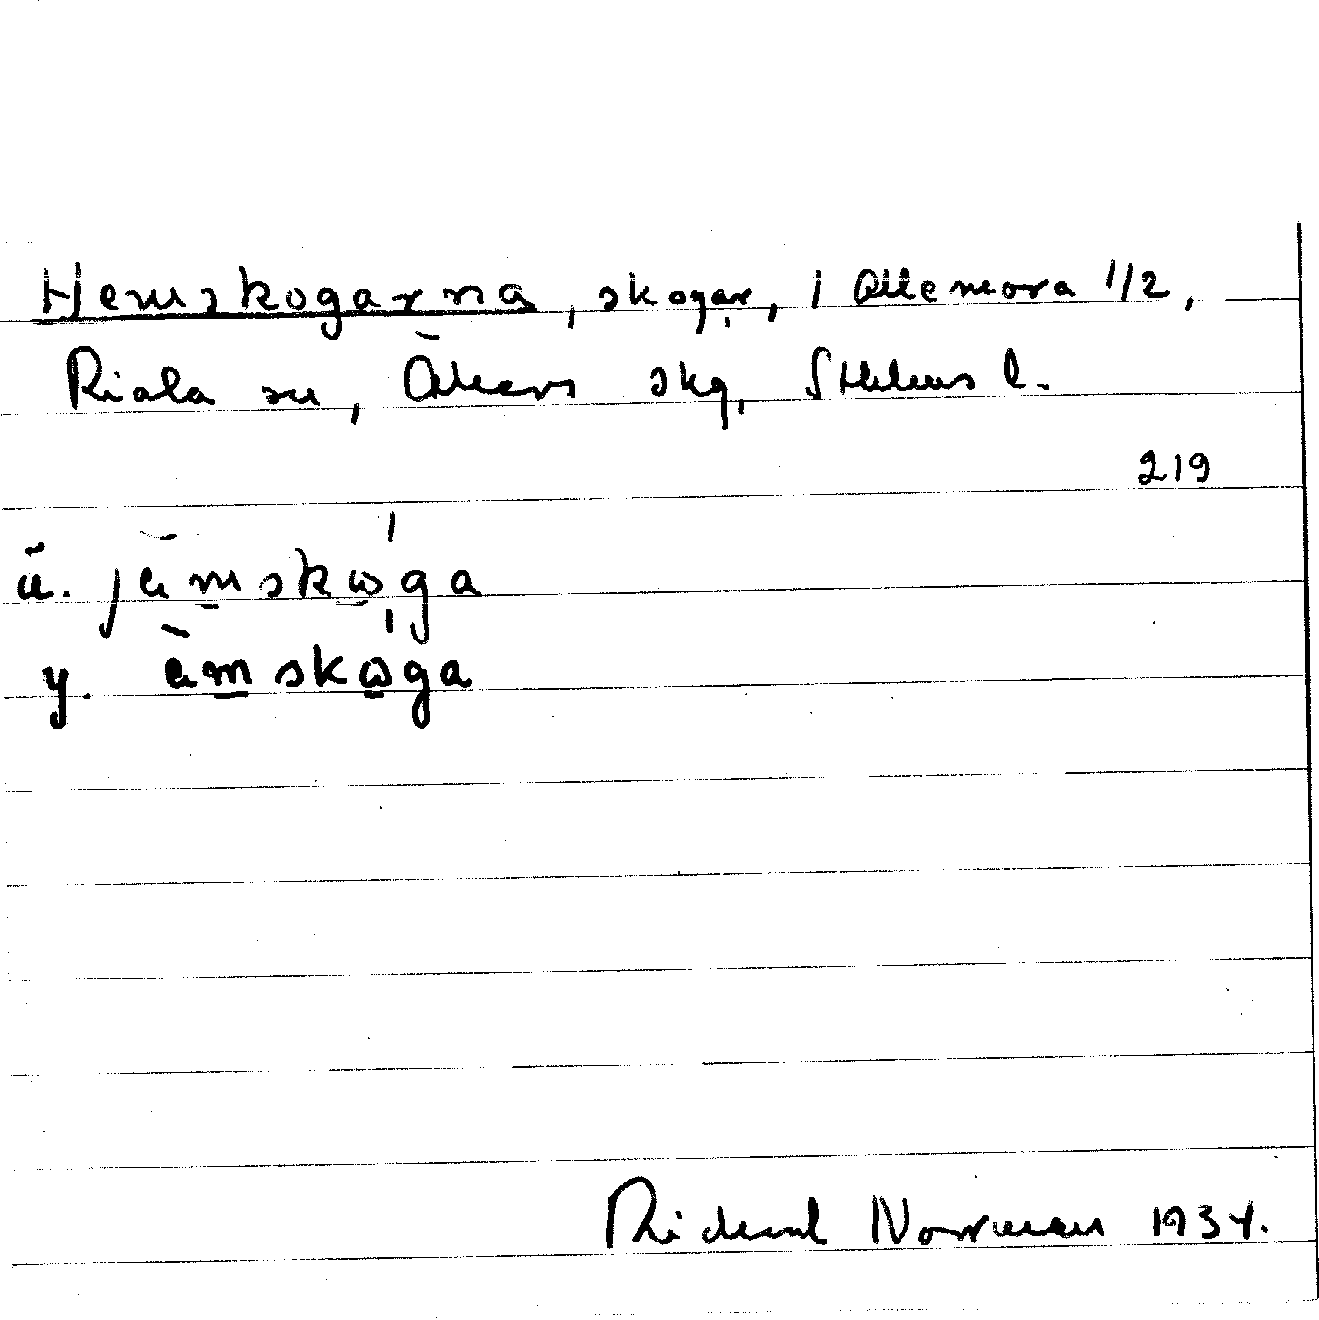 Hemskogarna, skogar, i Allemora 1/2,
Riala sn, Åkers skg, Sthlms l.
219
ä. jämskωga
y. ämskωga
Rideval Norrman 1934.